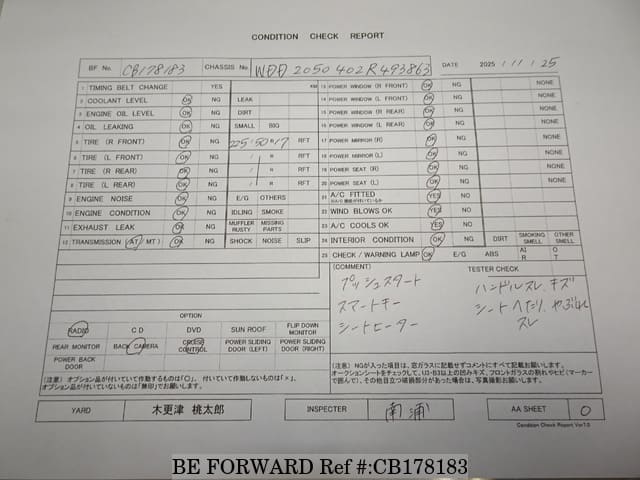 CONDITION CHECK REPORT
BF No. CB178183 CHASSIS No WDD 2050 402R493863 DATE 2025 / 11 / 25
1 TIMING BELT CHANGE YES KM
2 COOLANT LEVEL OK NG LEAK
3 ENGINE OIL LEVEL OK NG DIRT
4 OIL LEAKING OK NG SMALL BIG
5 TIRE (R FRONT) OK NG 225/50R17 RFT
6 TIRE (L FRONT) OK NG / R RFT
7 TIRE (R REAR) OK NG / R RFT
8 TIRE (L REAR) OK NG / R RFT
9 ENGINE NOISE OK NG E/G OTHERS
10 ENGINE CONDITION OK NG IDLING SMOKE
11 EXHAUST LEAK OK NG MUFFLER RUSTY MISSING PARTS
12 TRANSMISSION (AT/ MT) OK NG SHOCK NOISE SLIP
13 POWER WINDOW (R FRONT) OK NG NONE
14 POWER WINDOW (L FRONT) OK NG NONE
15 POWER WINDOW (R REAR) OK NG NONE
16 POWER WINDOW (L REAR) OK NG NONE
17 POWER MIRROR (R) OK NG NONE
18 POWER MIRROR (L) OK NG NONE
19 POWER SEAT (R) OK NG NONE
20 POWER SEAT (L) OK NG NONE
21 A/C FITTED YES NO
22 WIND BLOWS OK YES NO
23 A/C COOLS OK YES NO
24 INTERIOR CONDITION OK NG DIRT SMOKING SMELL OTHER SMELL
25 CHECK / WARNING LAMP OK E/G ABS AI R O T
(COMMENT) TESTER CHECK
プッシュスタート ハンドルスレ、キズ
スマートキー シートヘたり、やぶれ
シートヒーター スレ
OPTION
RADIO CD DVD SUN ROOF FLIP DOWN MONITOR
REAR MONITOR BACK CAMERA CRUISE CONTROL POWER SLIDING DOOR (LEFT) POWER SLIDING DOOR (RIGHT)
POWER BACK DOOR
(注意) オプション品が付いていて作動するものは「〇」、付いていて作動しないものは「×」、
オプション品が付いていないものは「無印」でお願いします。
(注意) NGが入った項目は、窓ガラスに記載せずコメントにすべて記載お願いします。
オークションシートをチェックして、U3・B3以上の凹みキズ、フロントガラスの割れやヒビ(マーカー
で囲んで)、その他目立つ破損部分があった場合は、写真撮影お願いします。
YARD 木更津 桃太郎 INSPECTER 南浦 AA SHEET 0
Condition Check Report Ver7.0
BE FORWARD Ref #:CB178183